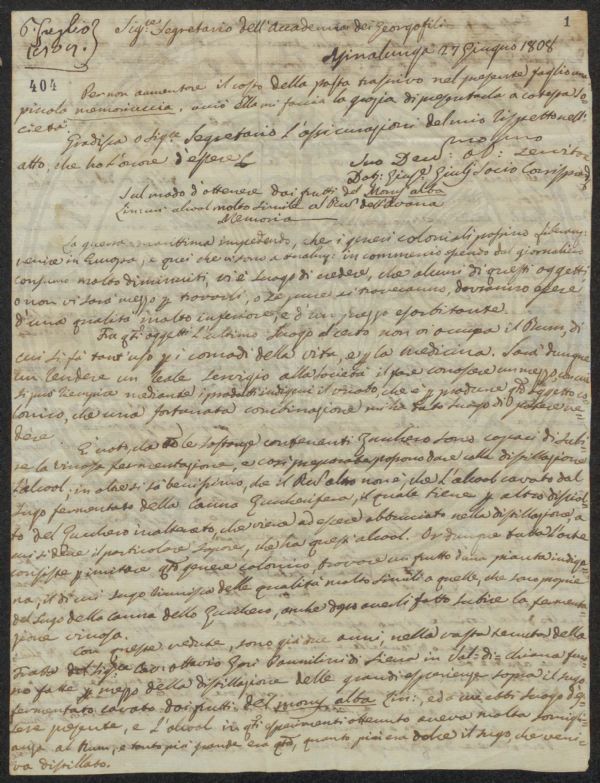 6 Luglio
1
Sig.re Segretario dell'Accademia dei Georgofili
Asinalunga 27 Giugno 1808
404
Per non aumentare il costo della posta trascrivo nel presente foglio una
piccola memoriuccia, acciò ella mi faccia la grazia di presentarla a cotesta So-
cietà.
Gradisca o Sig.re Segretario l'assicurazioni del mio rispetto nell'
atto, che ho l'onore d'essere
Suo Dev: ob: Servitore
Dott: Gius: Giulj Socio Corrispond.
Sul modo d'ottenere dai frutti del Morus alba
Linn: un alcool molto simile al Rum dell'Avana
Memoria
La guerra marittima impedendo, che i generi coloniali possino
venire in Europa, e quei che vi sono in commercio essendo dal giornaliero
consumo molto diminuiti, vi è luogo di credere, che alcuni di questi oggetti
o non vi sarà mezzo p trovarli, o se pure si troveranno, dovranno essere
d'una qualità molto inferiore, e d'un prezzo esorbitante.
Fra q.ti oggetti l'ultimo luogo al certo non vi occupa il Rum, di
cui si fà tant'uso p i comodi della vita, e p la medicina. Sarà dunque
un rendere un reale servigio alla società il fare conoscere un mezzo, con cui
si può mediante i prodotti indigeni q.to oggetto co-
lonico, che una fortunata combinazione mi ha dato luogo di potere ve-
dere.
È noto, che le sostanze contenenti zucchero sono capaci di subi-
re la vinosa fermentazione, e così preparate possono dare alla distillazione
l'alcool; in oltre si sà benissimo, che il Rum altro non è, che l'alcool cavato dal
sugo fermentato della Canna Zuccherifera, il quale tiene p altro disciol-
to del zucchero inalterato, che viene ad essere abbruciato nella distillazione
il particolare sapore, che ha quest'alcool. Or dunque tutta l'arte
consiste p imitare q.to genere colonico trovare un frutto d'una pianta indige-
na, il di cui sugo fornisca delle qualità molto simili a quelle, che sono proprie
del sugo della canna dello zucchero, anche dopo averli fatto subire la fermenta-
zione vinosa.
Con queste vedute, sono già due anni, nella vasta tenuta della
Fratta del Sig.re Cav: Ottavio Gori Pannilini di Siena in Val-di-chiana fu-
rono fatte p mezzo della distillazione delle grandi esperienze sopra il sugo
fermentato cavato dai frutti del morus alba Lin:, ed io ne ebbi luogo d'es-
sere presente, e l'alcool in q.ti esperimenti ottenuto aveva molta somigli-
anza al Rum, e tanto più grande era q.ta, quanto più era dolce il sugo, che veni-
va distillato.